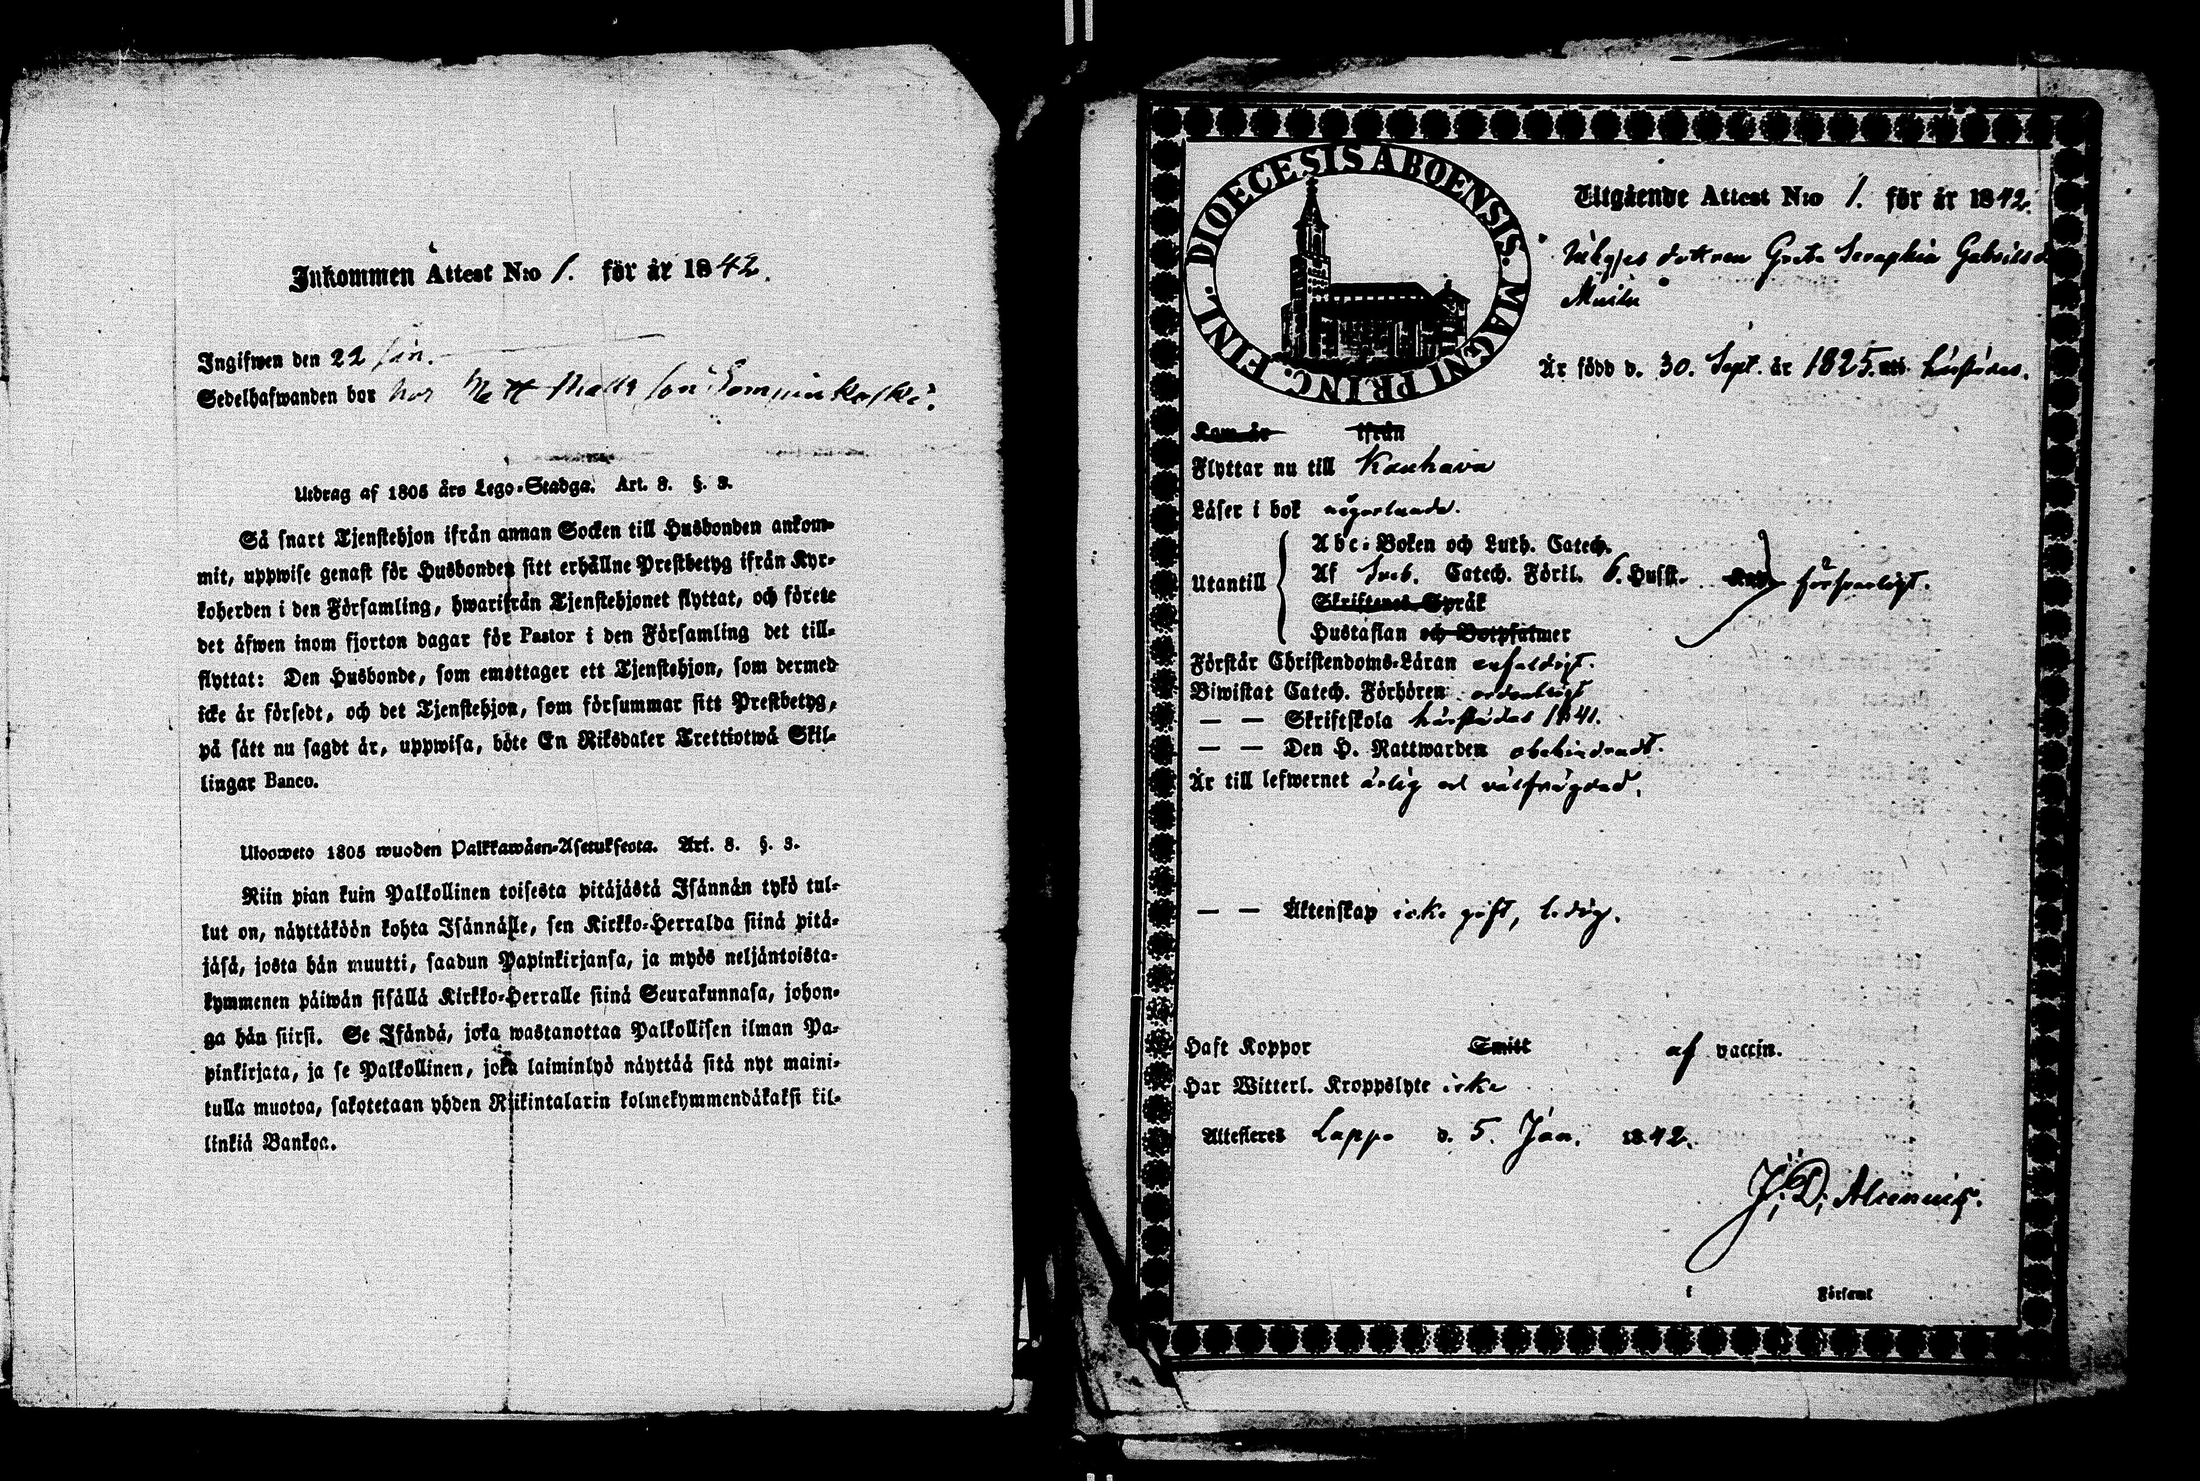 Inkommen Attest N:o 1. för år 1842.
Ingifwen den 22 Jan.
Sedelhafwanden bor hos Matt Matts son
Utdrag af 1805 års Lego-Stadga. Art. 8. §. 3.
Så snart Tjenstehjon ifrån annan Socken till Husbonden ankom-
mit, uppwise genast för Husbonden sitt erhållne Prestbetyg ifrån Kyr-
koherden i den Församling, hwarifrån Tjenstehjonet flyttat, och förete
det äfwen inom fjorton dagar för Pastor i den Församling det till-
flyttat: Den Husbonde, som emottager ett Tjenstehjon, som dermed
icke är försedt, och det Tjenstehjon, som försummar sitt Prestbetyg,
på sätt nu sagdt är, uppwisa, böte En Riksdaler Trettiotwå Skil-
lingar Banco.
Uloosweto 1805 wuoden Palkkawäen-Asetuksesta. Art. 8. §. 3.
Niin pian kuin Palkollinen toisesta pitäjästä Isännän tykö tul-
lut on, näyttäköön kohta Isännälle, sen Kirkko-Herralda siinä pitä-
jäsä, josta hän muutti, saadun Papinkirjansa, ja myös neljäntoista-
kymmenen päiwän sisällä Kirkko-Herralle siinä Seurakunnasa, johon-
ga hän siirsi. Se Isändä, joka wastanottaa Palkollisen ilman Pa-
pinkirjata, ja se Palkollinen, joka laiminlyö näyttää sitä nyt maini-
tulla muotoa, sakotetaan yhden Riikintalarin kolmekymmendäkaksi kil-
linkiä Bankoa.
DIOECESIS ABOENSIS. MAGNI PRINC. FINL.
Utgående Attest N:o 1. för år 1842.
dottren Greta Seraphia Gabriels d.
Är född d. 30. Sept. år 1825. härstädes.
Kom år ifrån
Flyttar nu till Kauhava
Läser i bok någorlunda.
Utantill
Abc-Boken och Luth. Catech.
Af Sveb. Catech. Förkl. 6. Hufst. försvarligt.
Skriftenes Språk
Hustaflan och Botpsalmer
Förstår Christendoms-Läran enfaldigt.
Biwistat Catech. Förhören ordentligt
— — Skriftskola härstädes 1841.
— — Den H. Nattwarden obehindradt.
Är till lefwernet ärlig och välfrägdad.
— — Äktenskap icke gift, ledig.
Haft Koppor Smitt af vaccin.
Har Witterl. Kroppslyte icke
Attesteres Lappo d. 5. Jan. 1842.
J. D. Alcenius.
i Församl